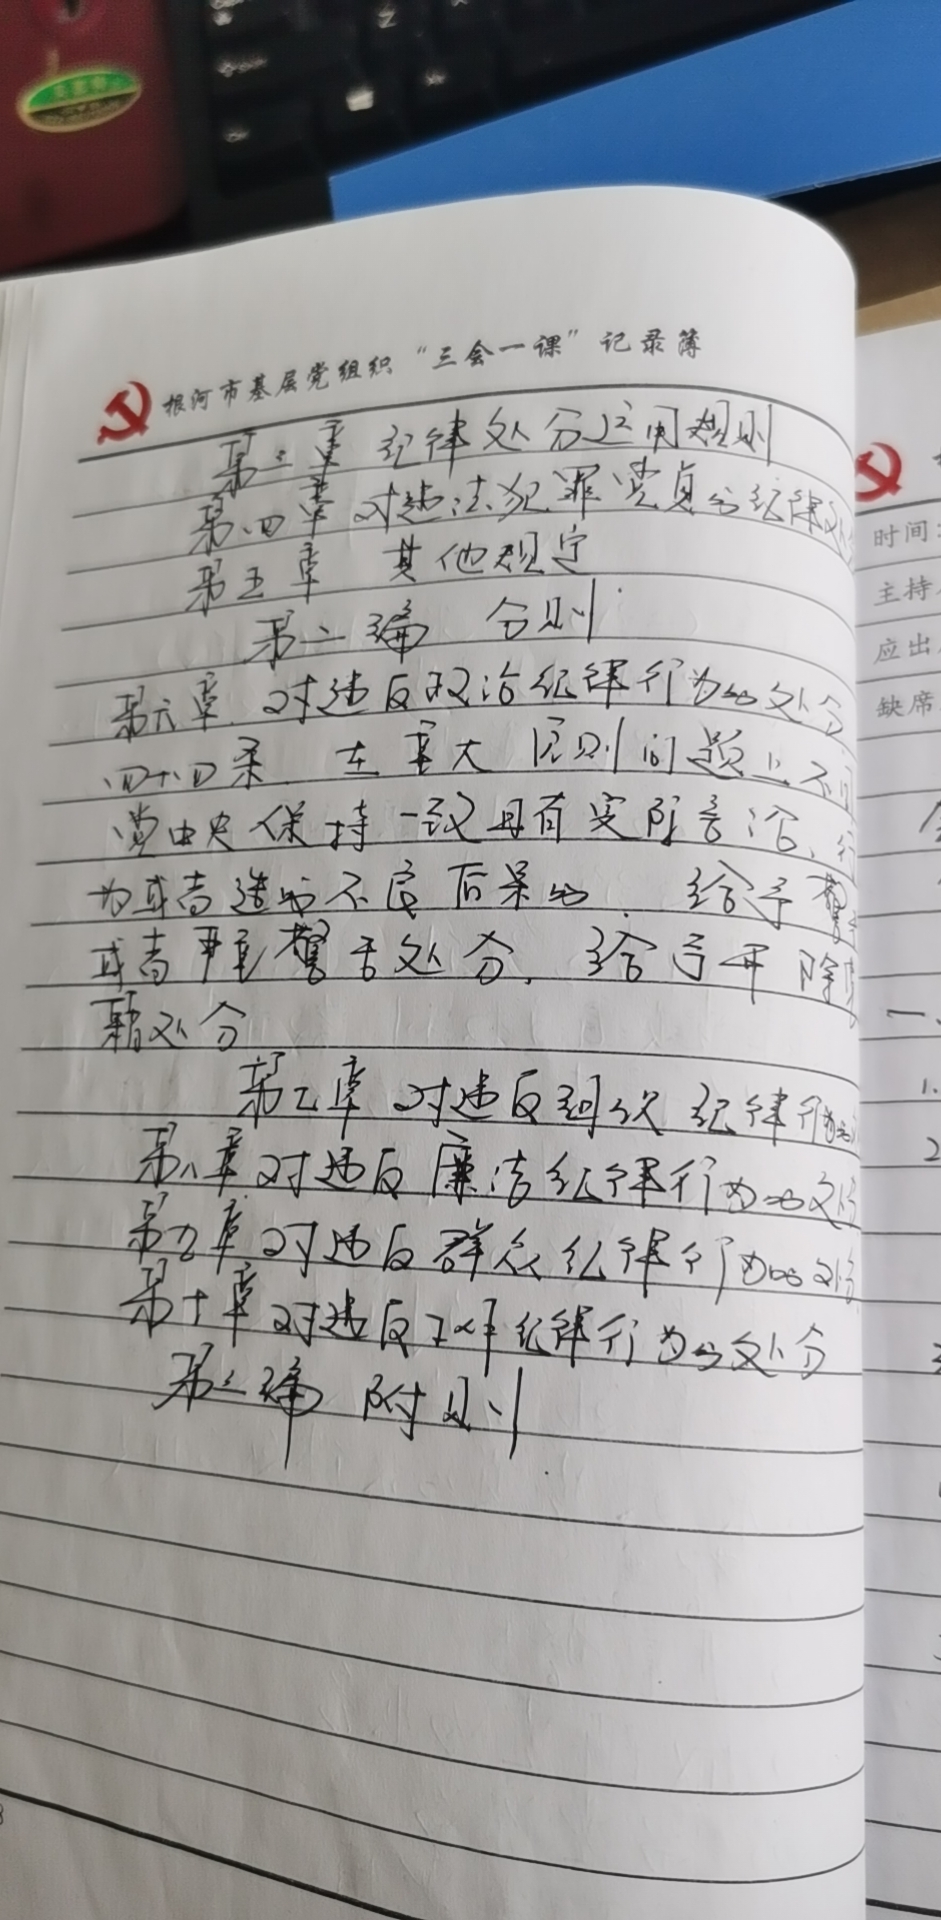 根河市基层党组织“三会一课”记录簿
第三章 纪律处分运用规则
第四章 对违法犯罪党员的纪律处
第五章 其他规定
第二编 分则
第六章 对违反政治纪律行为的处分
四十四条 在重大原则问题上不同
党中央保持一致且有实际言论、行
为或者造的不良后果的 给予警告
或者严重警告处分, 给予开除党
籍处分
第七章 对违反组织纪律行为的
第八章 对违反廉洁纪律行为的处分
第九章 对违反群众纪律行为的处分
第十章 对违反工作纪律行为的处分
第三编 附则
时间:
主持
应出
缺席
一、
1.
2